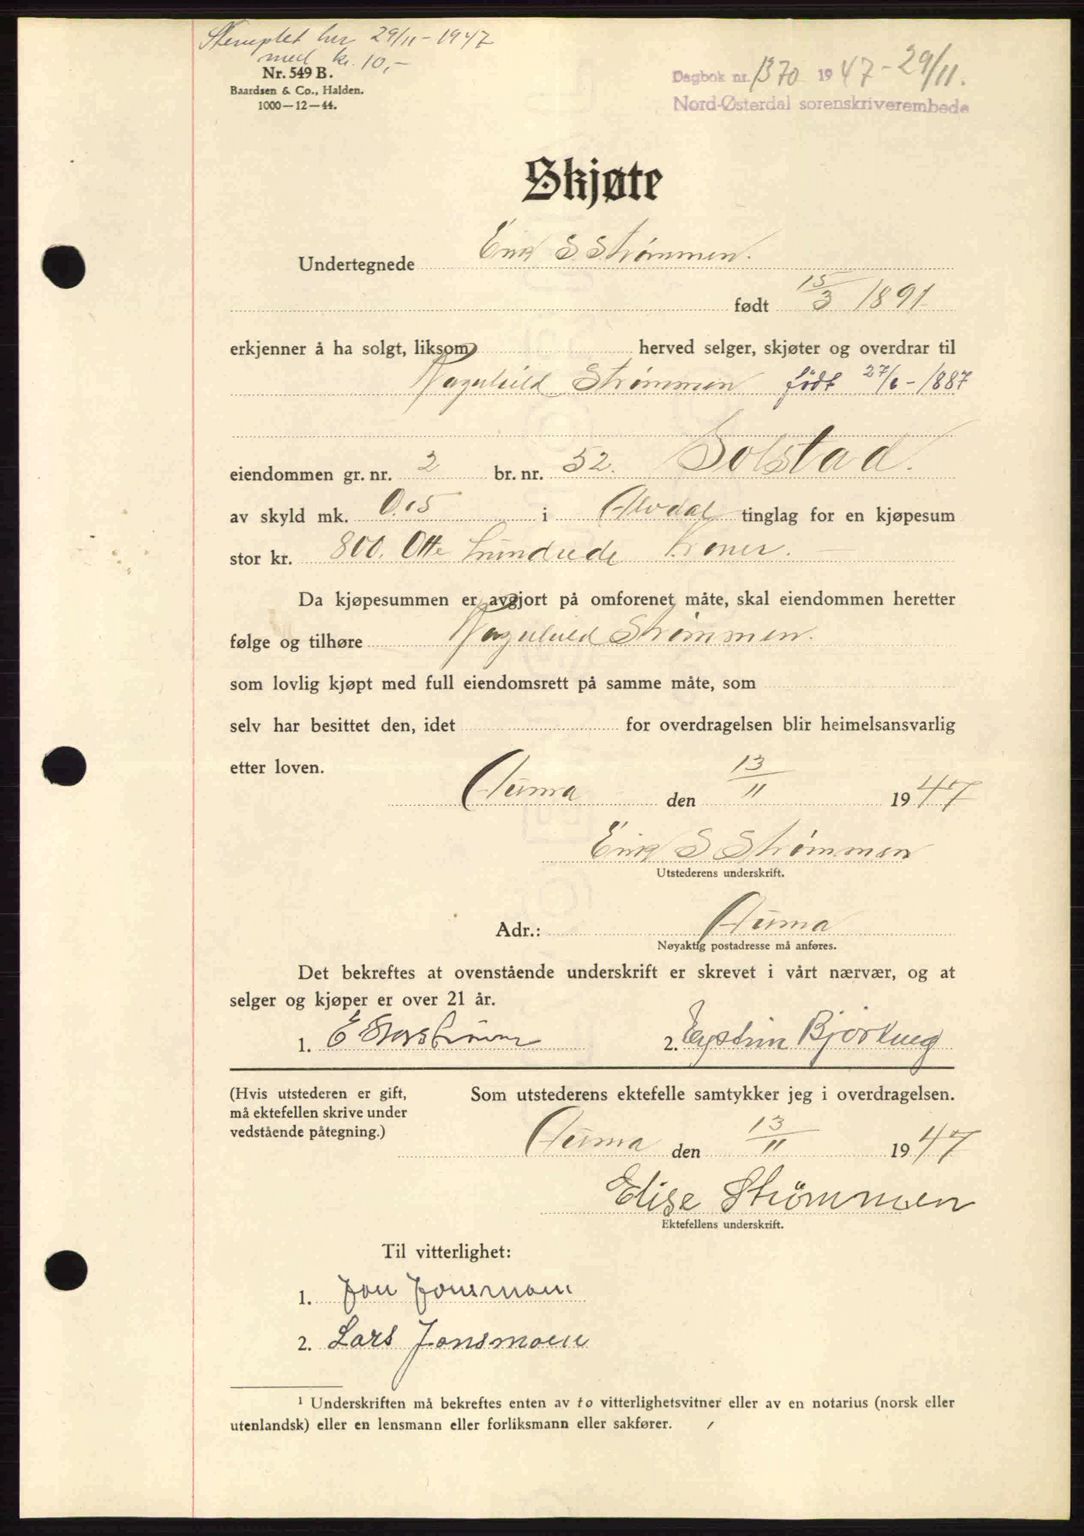 Stemplet her 29/11-1947
med kr. 10,-
Nr. 549 B.
Baardsen & Co., Halden.
1000—12—44.
Dagbok nr. 1370 1947-29/11.
Nord-Østerdal sorenskriverembede
Skjøte
Undertegnede Erik S Strømmen.
født 15/3 1891
erkjenner å ha solgt, liksom herved selger, skjøter og overdrar til
Ragnhild Strømmen født 27/6-1887
eiendommen gr. nr. 2 br. nr. 52. Solstad.
av skyld mk. 0.15 i Alvdal tinglag for en kjøpesum
stor kr. 800. Otte hundrede kroner.
Da kjøpesummen er avgjort på omforenet måte, skal eiendommen heretter
følge og tilhøre Ragnhild Strømmen.
som lovlig kjøpt med full eiendomsrett på samme måte, som
selv har besittet den, idet for overdragelsen blir heimelsansvarlig
etter loven.
Auma den 13/11 1947
Erik S Strømmen
Utstederens underskrift.
Adr.: Auma
Nøyaktig postadresse må anføres.
Det bekreftes at ovenstående underskrift er skrevet i vårt nærvær, og at
selger og kjøper er over 21 år.
1. E 2. Eystein Bjørkeng
(Hvis utstederen er gift,
må ektefellen skrive under
vedstående påtegning.)
Som utstederens ektefelle samtykker jeg i overdragelsen.
Auma den 13/11 1947
Elise Strømmen
Ektefellens underskrift.
Til vitterlighet:
1. Jon Jonsmoen
2. Lars Jonsmoen
¹ Underskriften må bekreftes enten av to vitterlighetsvitner eller av en notarius (norsk eller
utenlandsk) eller en lensmann eller forliksmann eller sakfører.